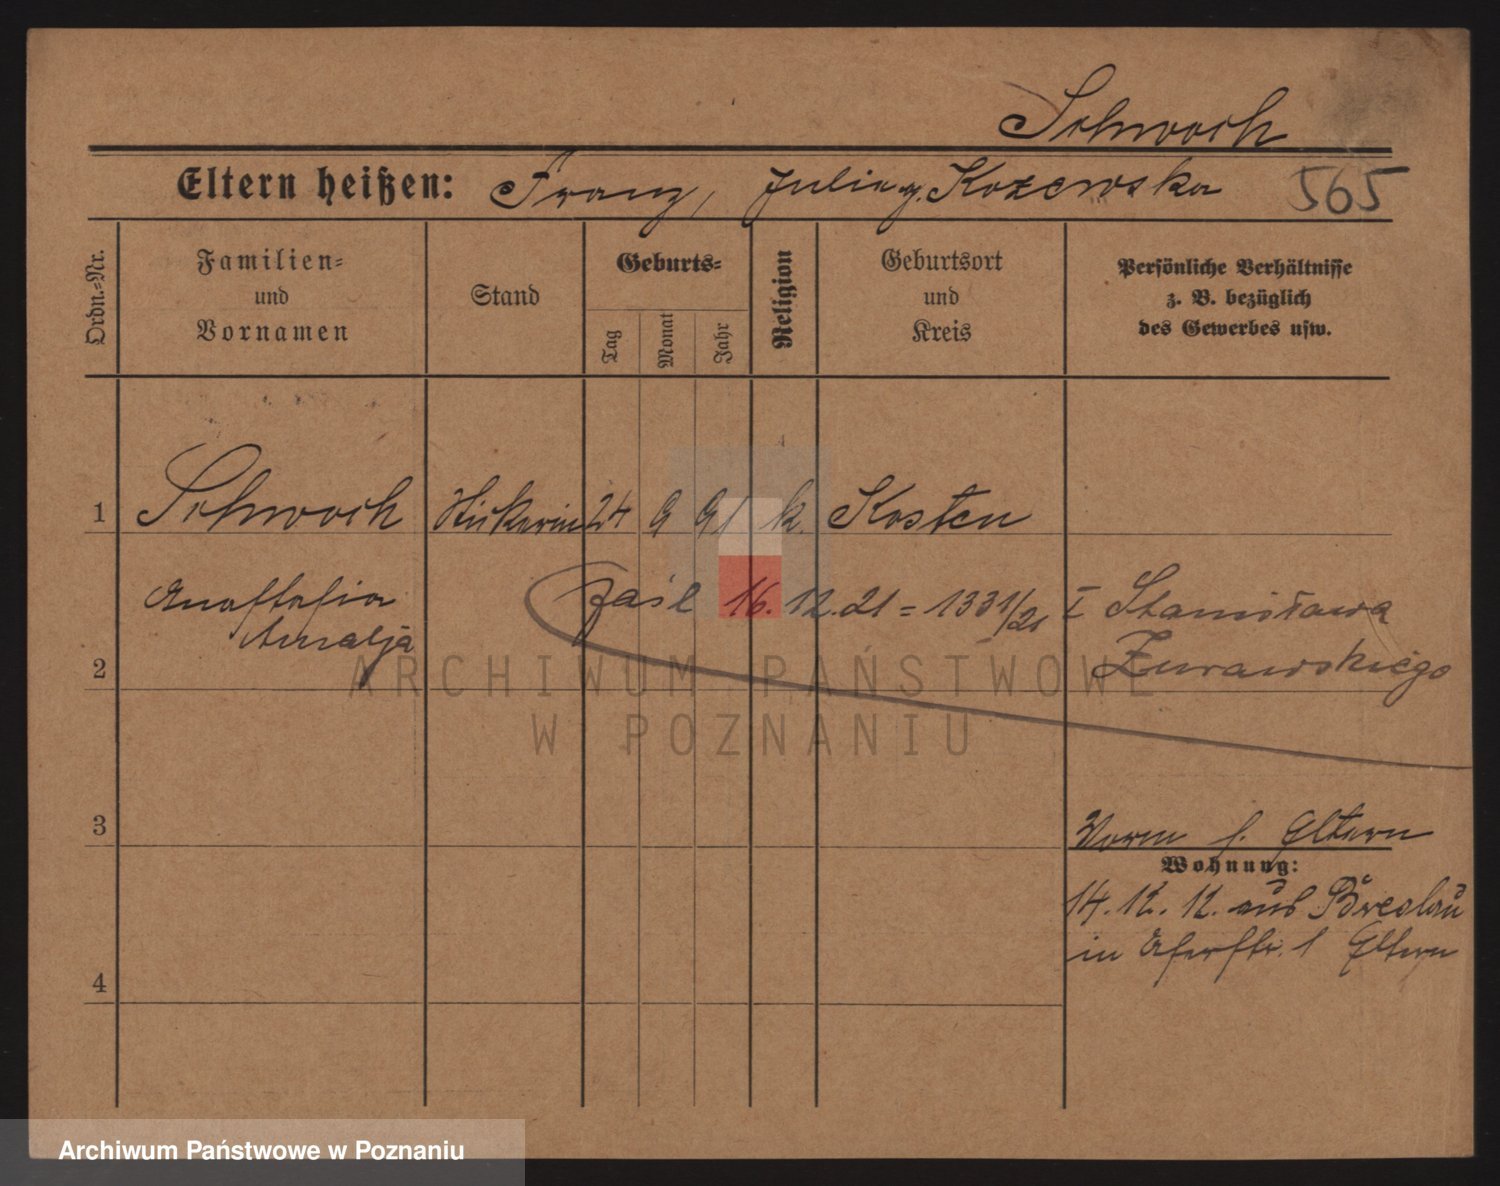 Schwoch
Eltern heißen: Franz, Julia g. Kozewska 565
Ordn.-Nr.
Familien-
und
Vornamen
Stand
Geburts-
Tag
Monat
Jahr
Religion
Geburtsort
und
Kreis
Persönliche Verhältnisse
z. B. bezüglich
des Gewerbes usw.
1 Schwoch 24 9 91 k. Kosten
Anastasia
Amalja
zaśl 16.12.21 = 1331/21 I Stanisława
Żurawskiego
2
3
Vorm f. Eltern
Wohnung:
14.12.12. aus Breslau
in 1 Eltern
4
ARCHIWUM PAŃSTWOWE
W POZNANIU
Archiwum Państwowe w Poznaniu